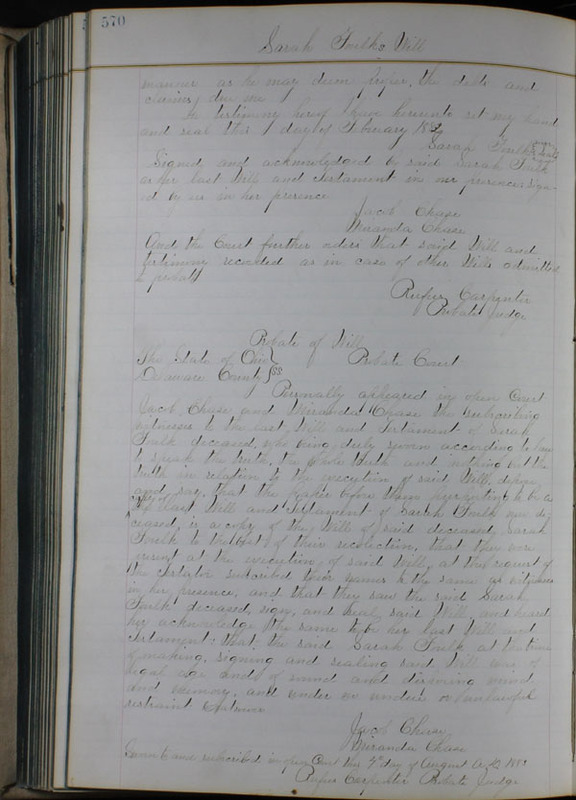 570
Sarah Foulks Will
manner as he may deem proper, the debts and
claims due me
In testimony hereof I have hereunto set my hand
and seal this 1 day of February
Sarah Foulk seal
Signed and acknowledged by said Sarah Foulk
as her last Will and testament in our presence sign-
ed by us in her presence
Jacob Chase
Miranda Chase
And the Court further orders that said Will and
testimony recorded as in case of other Wills admitted
to probate
Rufus Carpenter
Probate Judge
Probate of Will
The State of Ohio } Probate Court
Delaware County } SS
Personally appeared in open Court
Jacob Chase and Miranda Chase the subscribing
witnesses to the last Will and testament of Sarah
Foulk deceased, who being duly sworn according to law
to speak the truth, the whole truth and nothing but the
truth in relation to the execution of said Will, depose
and say, that the paper before them purporting to be a
copy of last Will and testament of Sarah Foulk now de-
ceased, is a copy of the Will of said deceased Sarah
Foulk to the best of their recolection, that they were
present at the execution of said Will, at the request of
the testator subscribed their names to the same as witnesses
in her presence, and that they saw the said Sarah
Foulk deceased, sign, and seal said Will, and heard
her acknowledge the same to be her last Will and
testament, that the said Sarah Foulk at the time
of making, signing and sealing said Will was of
legal age and of sound and disposing mind
and memory, and under no undue or unlawful
restraint whatsoever
Jacob Chase
Miranda Chase
Sworn to and subscribed in open Court this 7th day of August A.D. 1883
Rufus Carpenter Probate Judge